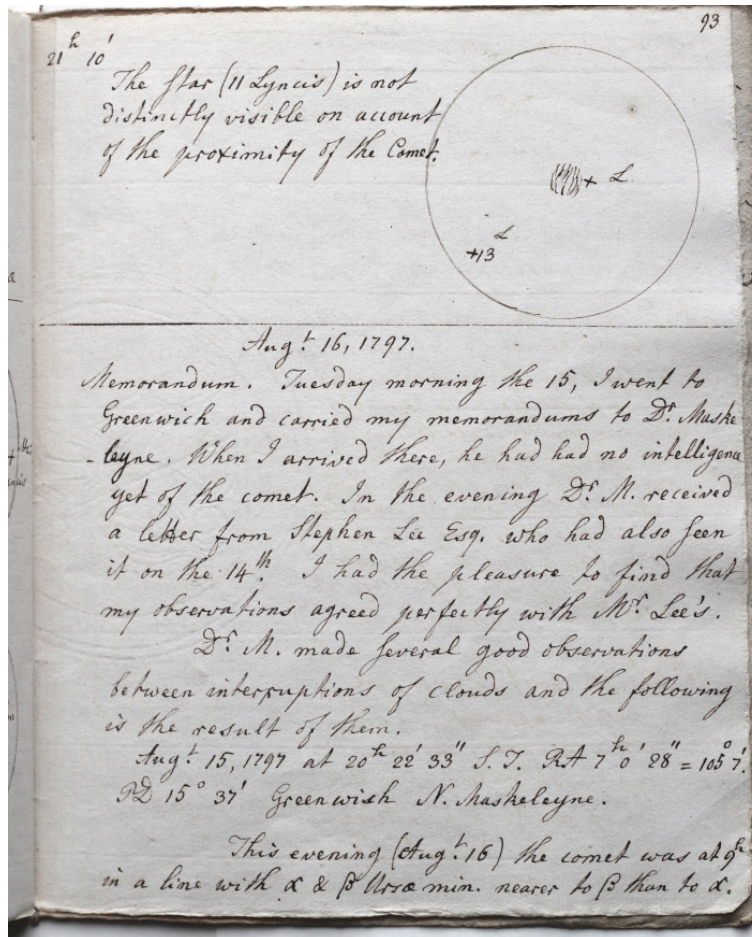 93
21ʰ 10'
The Star (11 Lyncis) is not
distinctly visible on account
of the proximity of the Comet.
+ L
L
+13
Augᵗ 16, 1797.
Memorandum. Tuesday morning the 15, I went to
Greenwich and carried my memorandums to Dʳ Maske
-leyne. When I arrived there, he had had no intelligence
yet of the comet. In the evening Dʳ M. received
a letter from Stephen Lee Esq. who had also seen
it on the 14ᵗʰ. I had the pleasure to find that
my observations agreed perfectly with Mʳ Lee's.
Dʳ M. made several good observations
between interruptions of clouds and the following
is the result of them.
Augᵗ 15, 1797 at 20ʰ 22' 33" S.T. RA 7ʰ 0' 28" = 105° 7'.
PD 15° 37' Greenwish N. Maskeleyne.
This evening (Augᵗ 16) the comet was at 9ʰ
in a line with α & β Ursæ min. nearer to β than to α.